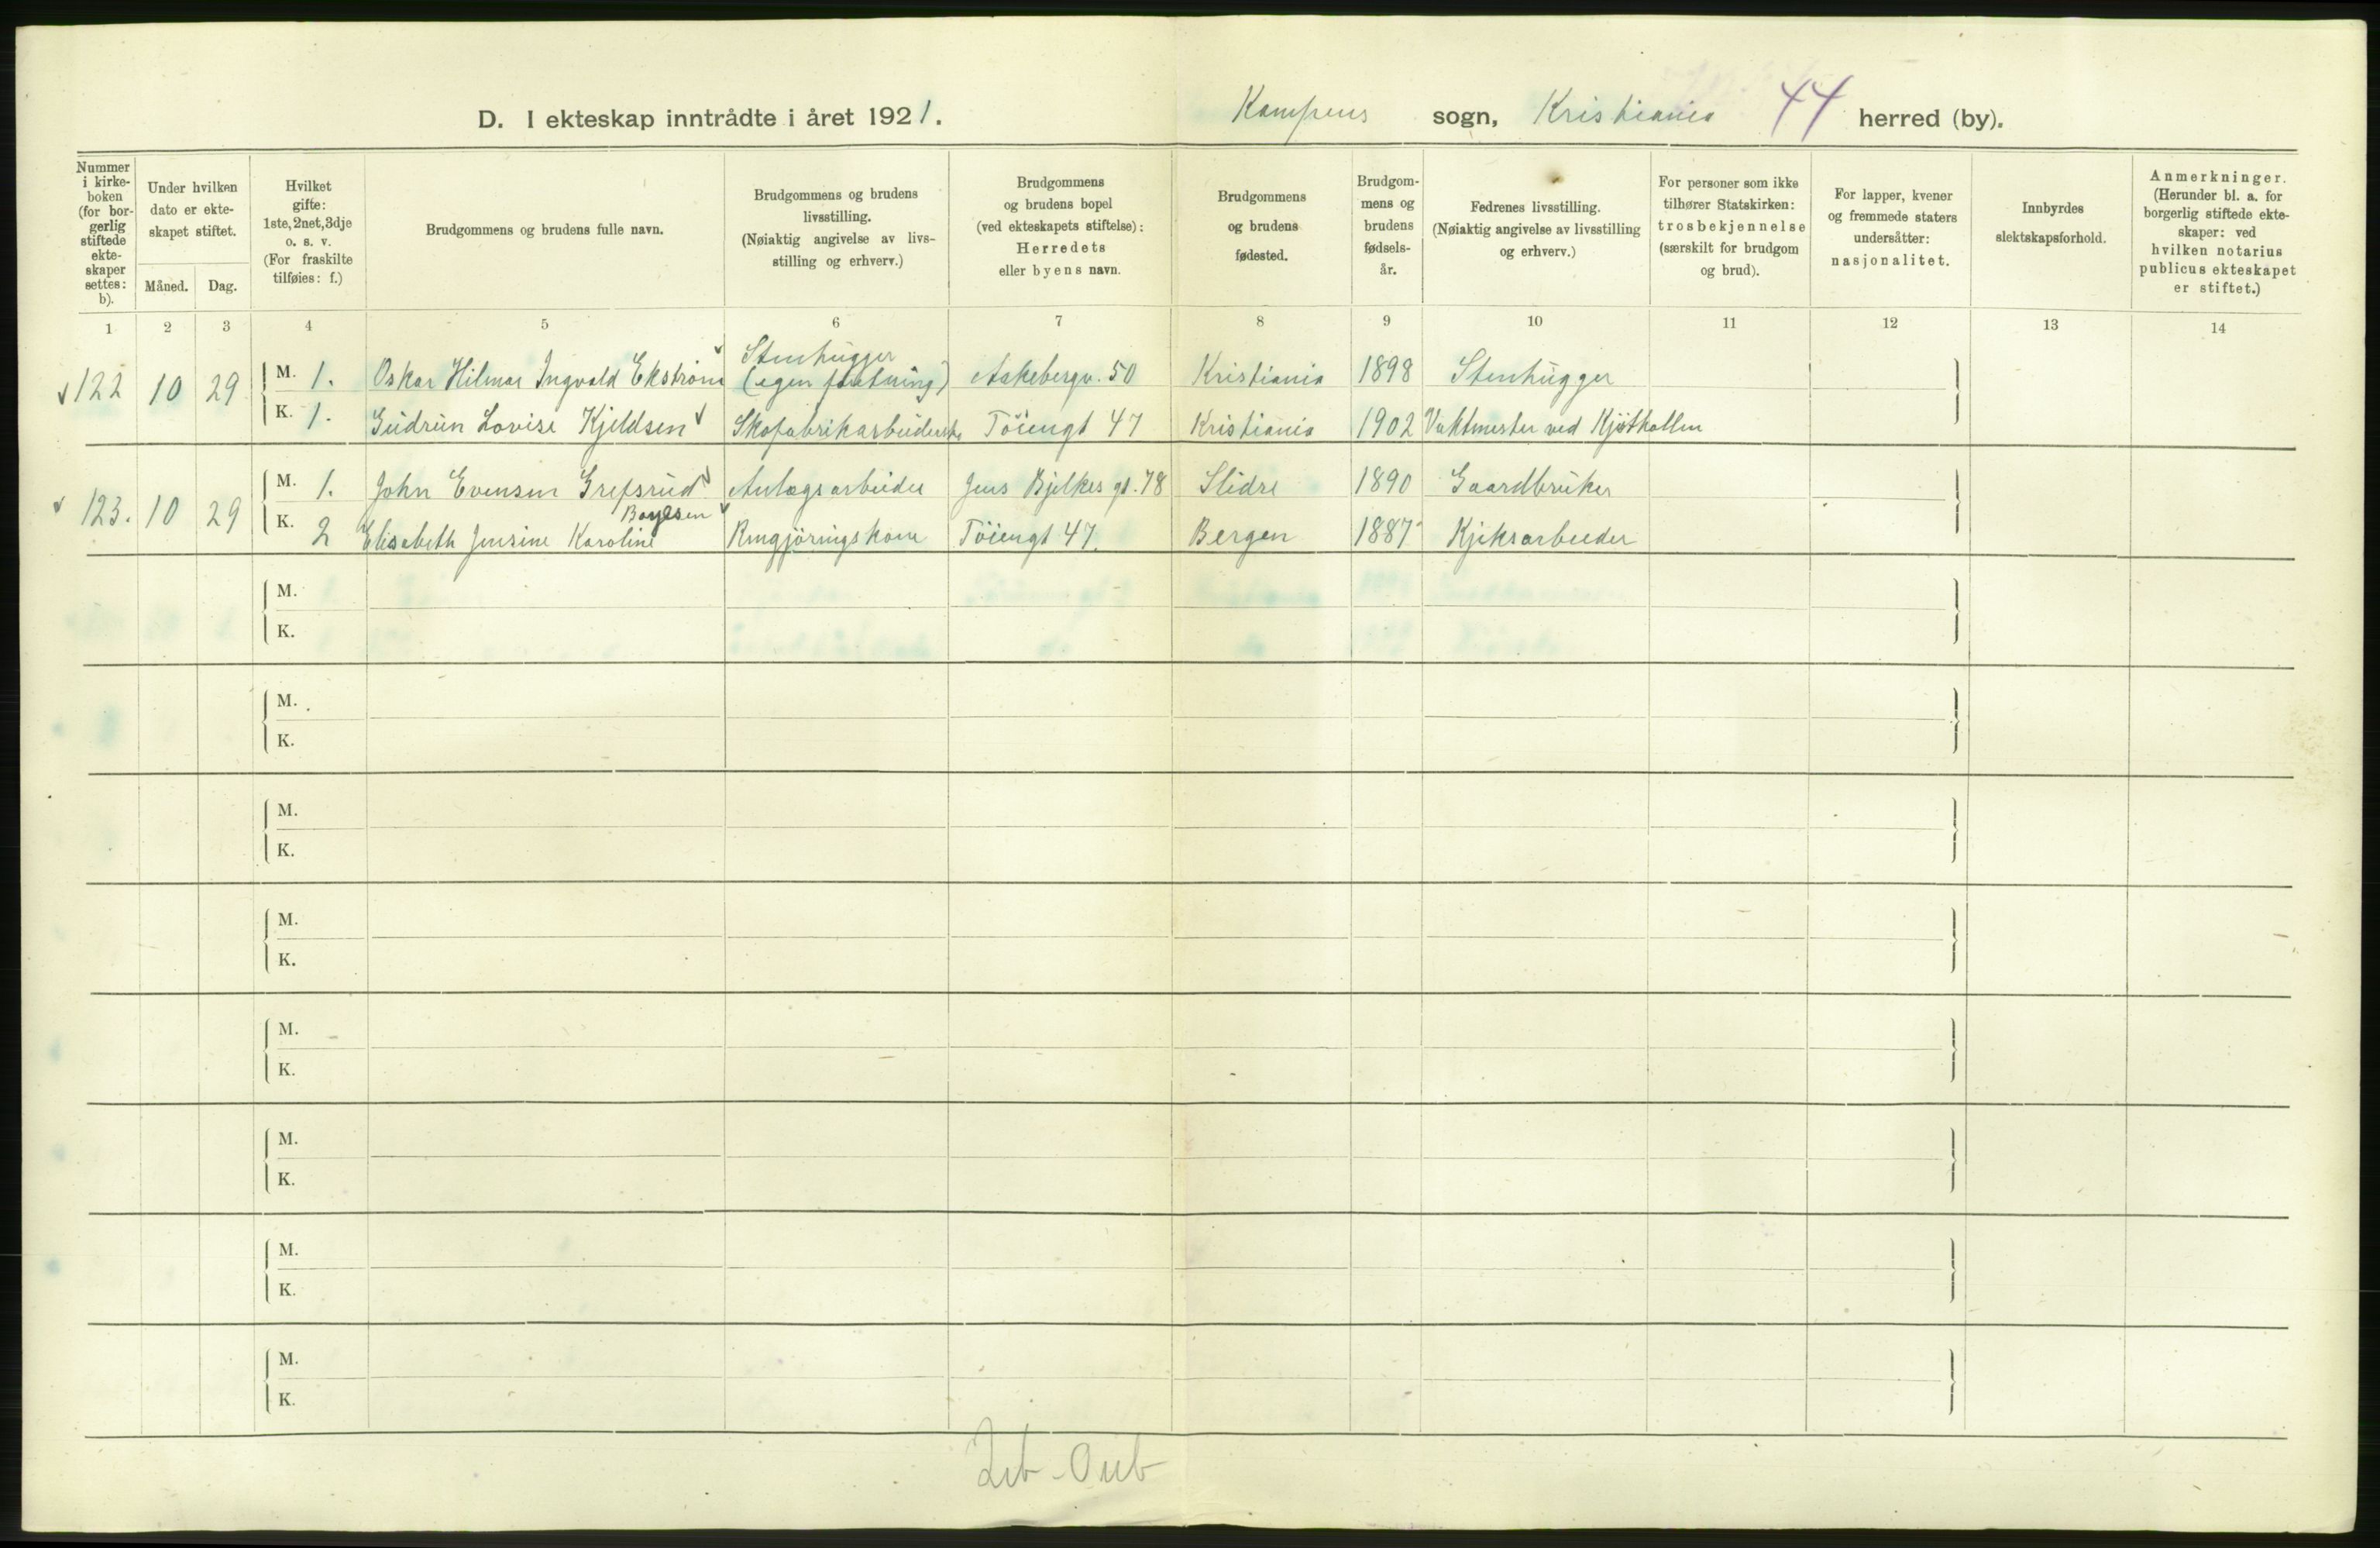 D. I ekteskap inntrådte i året 1921. Kampens sogn, Kristiania 44 herred (by).
Nummer i kirke-boken (for bor-gerlig stiftede ekte-skaper settes: b).
Under hvilken dato er ekte-skapet stiftet.
Måned. Dag.
Hvilket gifte: 1ste, 2net, 3dje o. s. v. (For fraskilte tilføies: f.)
Brudgommens og brudens fulle navn.
Brudgommens og brudens livsstilling. (Nøiaktig angivelse av livs-stilling og erhverv.)
Brudgommens og brudens bopel (ved ekteskapets stiftelse): Herredets eller byens navn.
Brudgommens og brudens fødested.
Brudgom-mens og brudens fødsels-år.
Fedrenes livsstilling. (Nøiaktig angivelse av livsstilling og erhverv.)
For personer som ikke tilhører Statskirken: trosbekjennelse (særskilt for brudgom og brud).
For lapper, kvener og fremmede staters undersåtter: nasjonalitet.
Innbyrdes slektskapsforhold.
Anmerkninger. (Herunder bl. a. for borgerlig stiftede ekte-skaper: ved hvilken notarius publicus ekteskapet er stiftet.)
1 2 3 4 5 6 7 8 9 10 11 12 13 14
Stenhugger
122 10 29 M. 1. Oskar Hilmar Ingvald Ekström (egen forretning) Aakebergv. 50 Kristiania 1898 Stenhugger
K. 1. Gudrun Lovise Kjeldsen Skofabrikarbeiderske Töiengt 47 Kristiania 1902 Vaktmester ved Kjöthallen
M. 1. John Evensen Grefsrud Anlægsarbeider Jens Bjelkes gt. 78 Slidre 1890 Gaardbruker
Boyesen
123. 10 29 K. 2 Elisabeth Jensine Karoline Rengjöringskone Töiengt 47. Bergen 1887 Kjeksarbeider
M.
K.
M.
K.
M.
K.
M.
K.
M.
K.
M.
K.
M.
K.
M.
K.